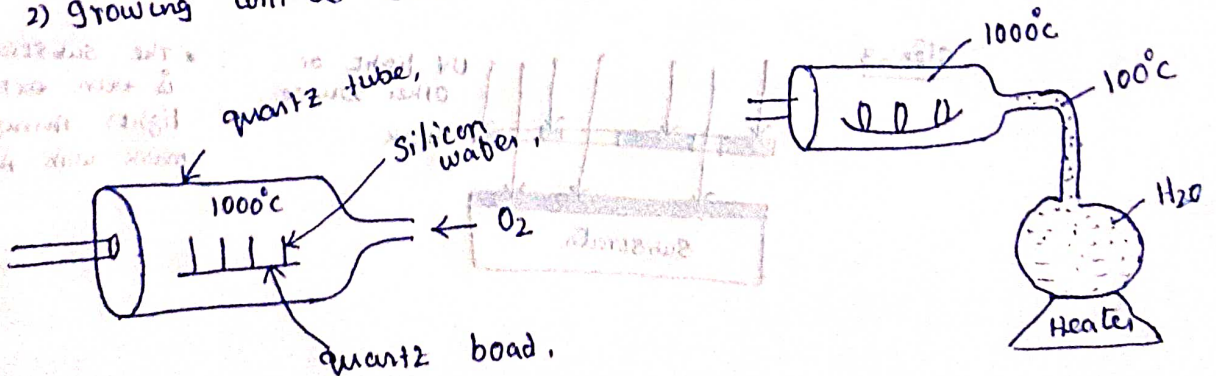 2) growing
quartz tube,
silicon
waber,
1000°C
← O2
quartz boad,
1000°C
100°C
H2O
Heater